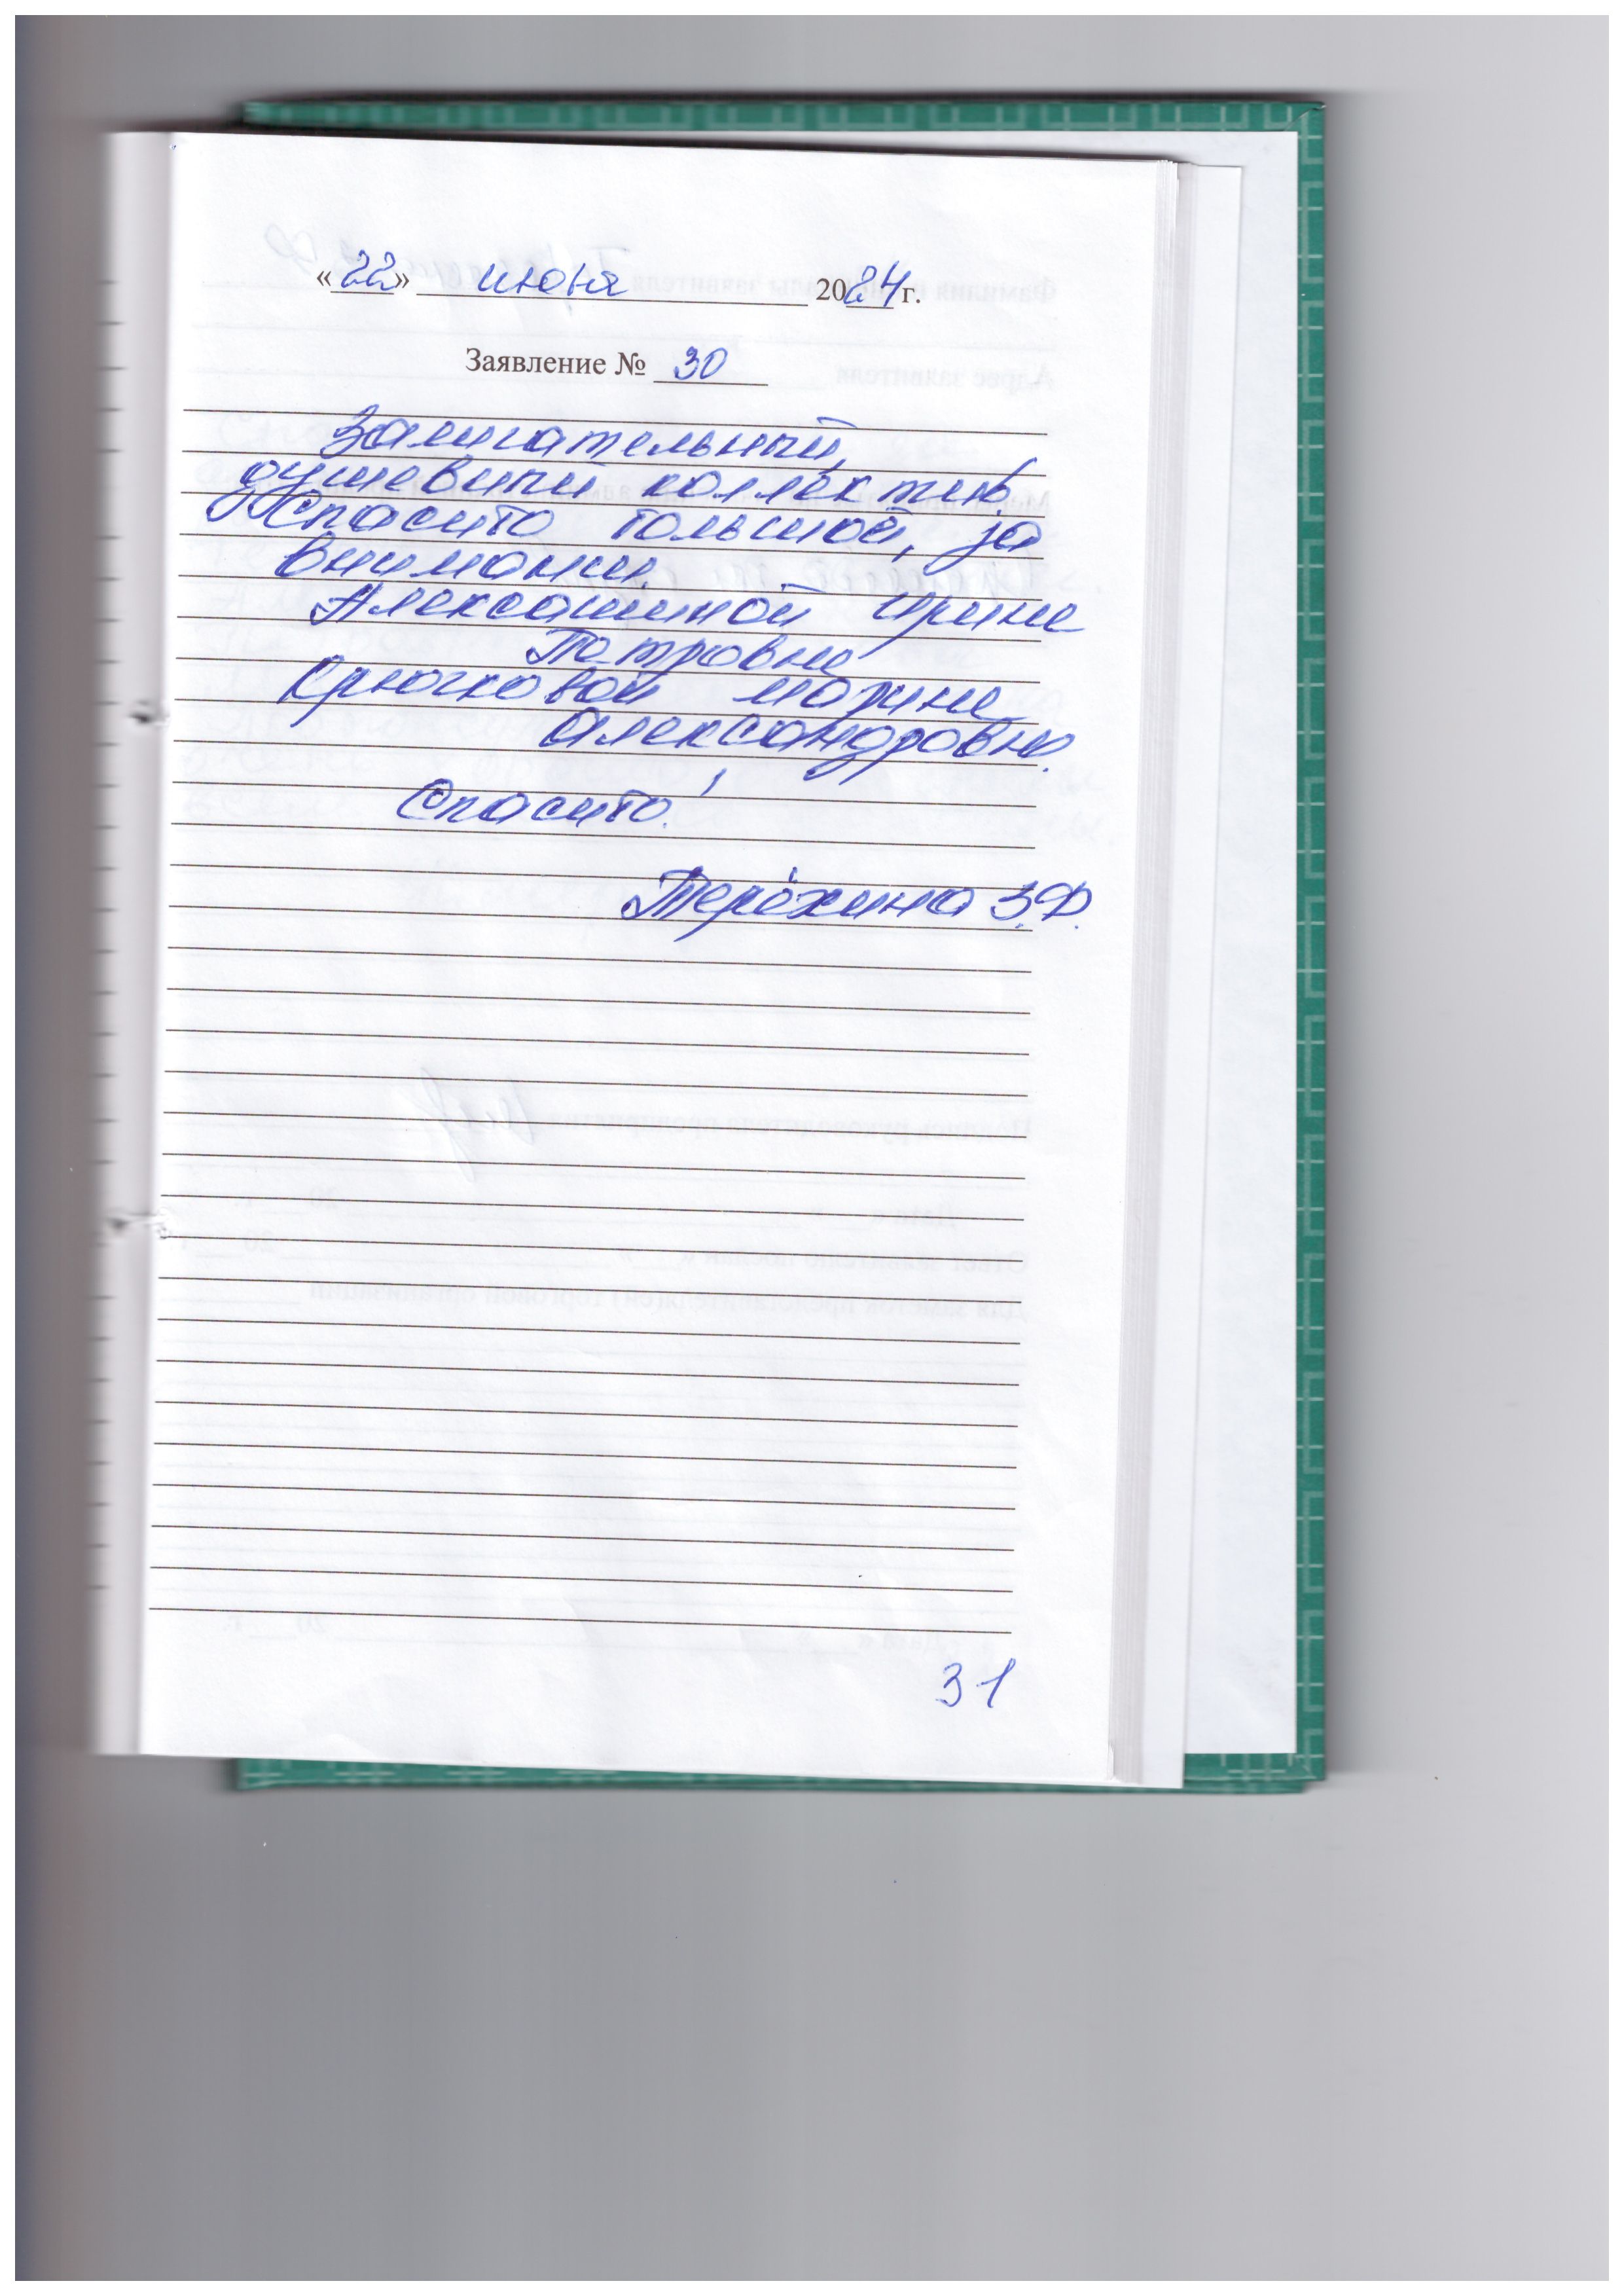 «22» июня 2024 г.
Заявление № 30
Замичательный,
душевный коллектив
Спасибо большой, за
внимании
Алексашиной Ирине
Петровне
Крючковой Марине
Александровне.
Спасибо!
Терёхина З.Ф.
31